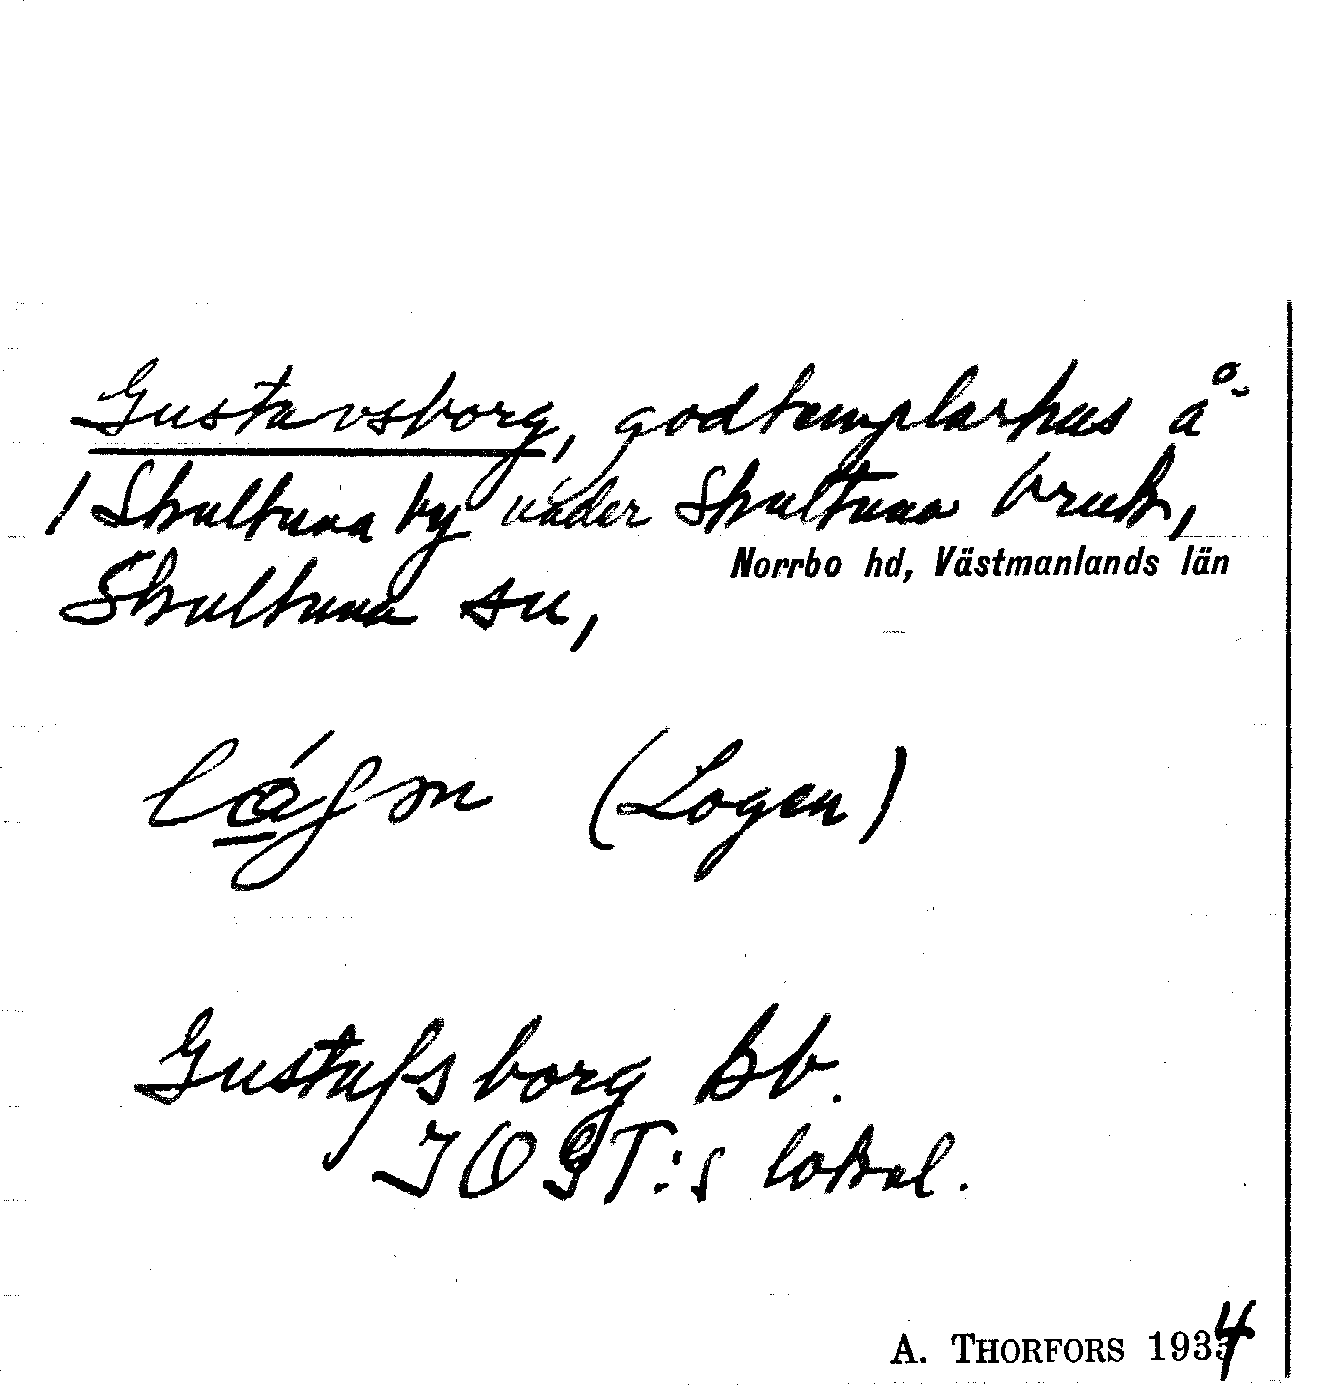 Gustavsborg, godtemplarhus å
1 Skultuna by under Skultuna bruk,
Norrbo hd, Västmanlands län
Skultuna sn,
(Logen)
Gustafsborg Bb.
IOGT:s lokal.
A. THORFORS 1934